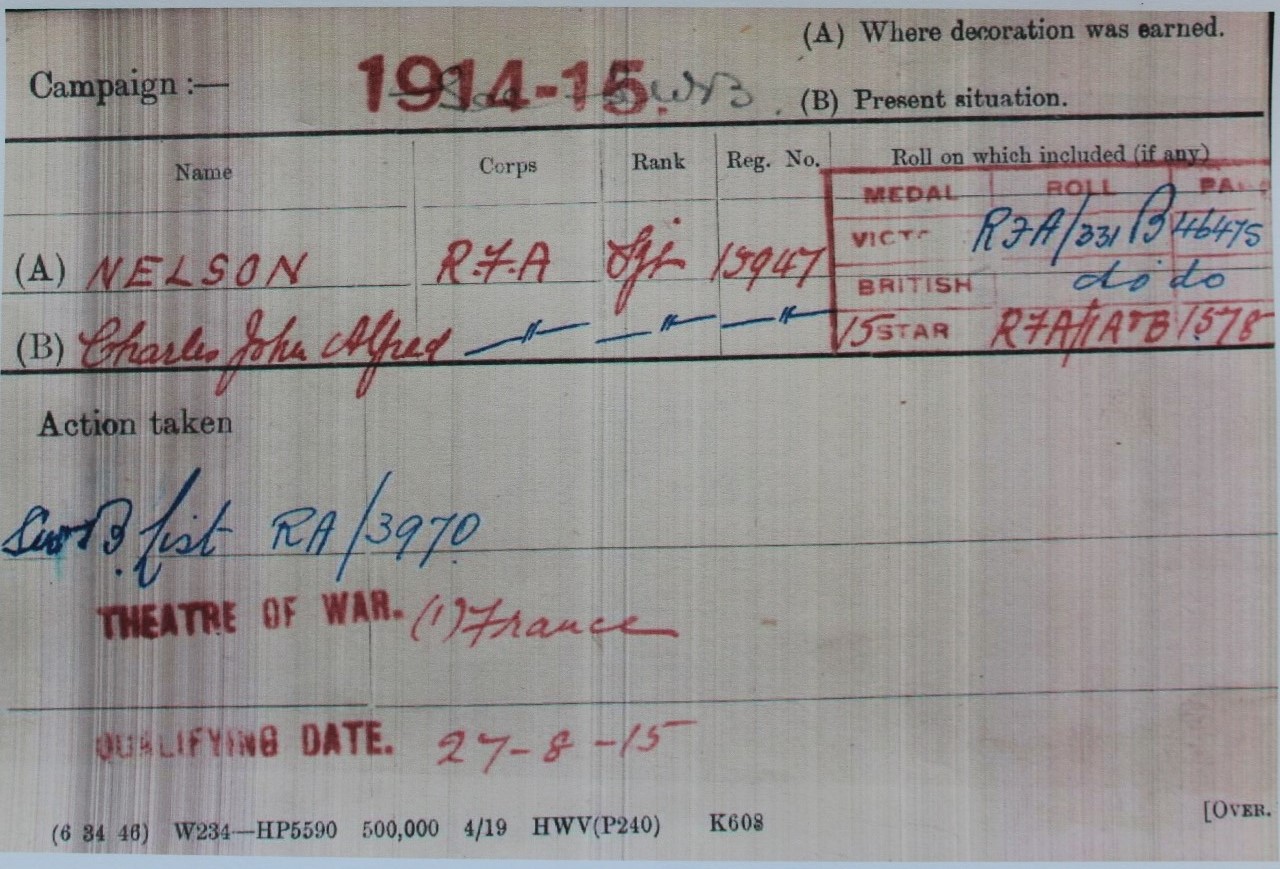 (A) Where decoration was earned.
Campaign :— 1914-15. SWB.
(B) Present situation.
Name Corps Rank Reg. No. Roll on which included (if any)
MEDAL ROLL
(A) NELSON R.F.A Sjt 15947 VICT RFA/331B 46475
BRITISH do do
(B) Charles John Alfred —"— —"— —"— 15 STAR RFA/1A&B 1578
Action taken
SWB list RA/3970
THEATRE OF WAR. (1) France
QUALIFYING DATE. 27-8-15
[OVER.
(6 34 46) W234—HP5590 500,000 4/19 HWV(P240) K608